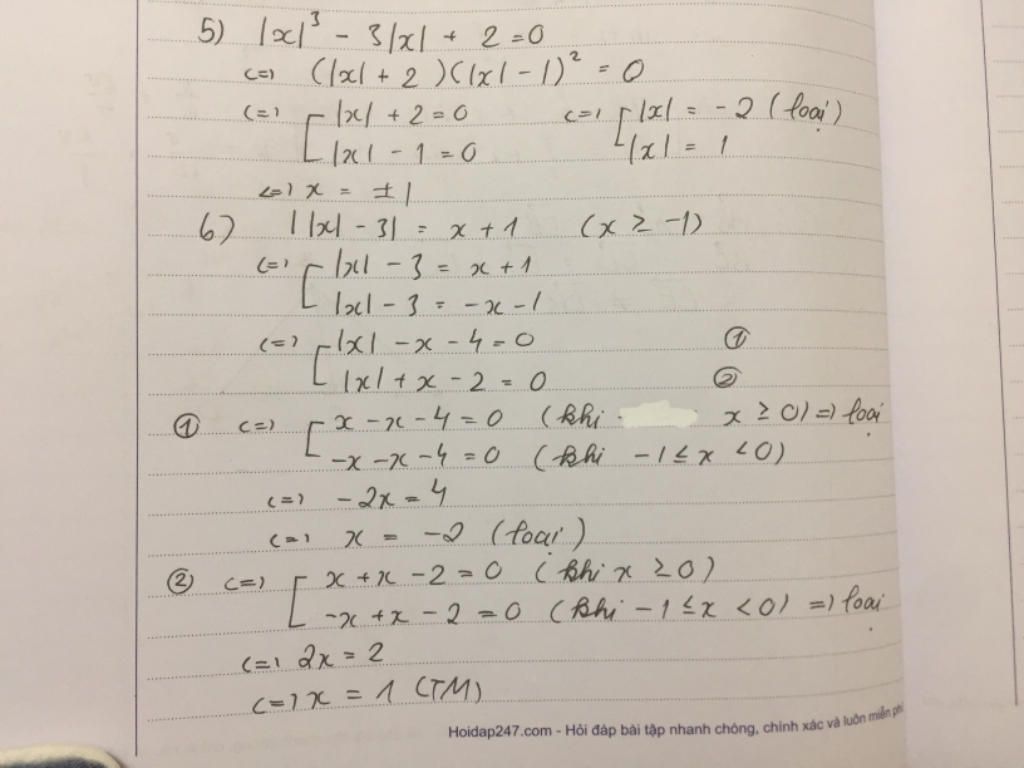 5) |x|³ - 3|x| + 2 = 0
<=> (|x| + 2)(|x| - 1)² = 0
<=> [ |x| + 2 = 0 <=> [ |x| = -2 (loại)
|x| - 1 = 0 |x| = 1
<=> x = ±1
6) ||x| - 3| = x + 1 (x ≥ -1)
<=> [ |x| - 3 = x + 1
|x| - 3 = -x - 1
<=> [ |x| - x - 4 = 0 ①
|x| + x - 2 = 0 ②
① <=> [ x - x - 4 = 0 (khi x ≥ 0) => loại
-x - x - 4 = 0 (khi -1 ≤ x < 0)
<=> -2x = 4
<=> x = -2 (loại)
② <=> [ x + x - 2 = 0 (khi x ≥ 0)
-x + x - 2 = 0 (khi -1 ≤ x < 0) => loại
<=> 2x = 2
<=> x = 1 (TM)
Hoidap247.com - Hỏi đáp bài tập nhanh chóng, chính xác và luôn miễn phí